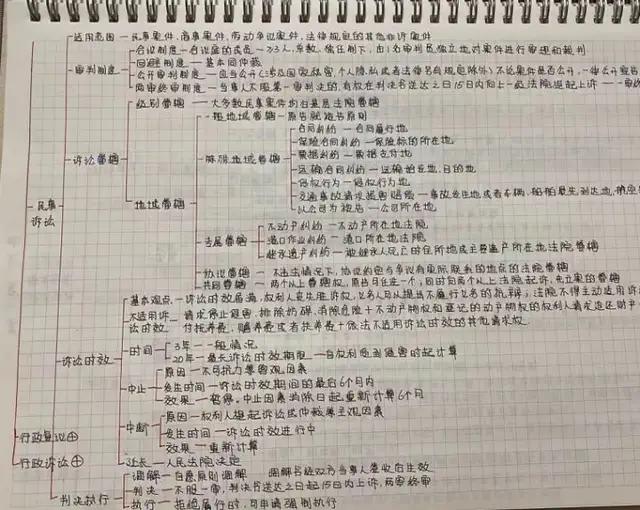 适用范围 — 民事案件, 商事案件, 劳动争议案件, 法律规定的其他非诉案件
审判制度
合议制度 — 合议庭的成员 — 3人, 奇数, 独任制下, 由1名审判员独立地对案件进行审理和裁判
回避制度 — 基本同仲裁
公开审判制度 — 应当公开(涉及国家秘密, 个人隐私或者法律另有规定除外) 不论案件是否公开, 一律公开宣告
两审终审制度 — 当事人不服第一审判决的, 有权在判决书送达之日15日内向上一级法院提起上诉
民事诉讼
诉讼管辖
级别管辖 — 大多数民事案件均归基层法院管辖
地域管辖
一般地域管辖 — 原告就被告原则
特殊地域管辖
合同纠纷 — 合同履行地
保险合同纠纷 — 保险标的所在地
票据纠纷 — 票据支付地
运输合同纠纷 — 运输始发地, 目的地
侵权行为 — 侵权行为地
交通事故请求损害赔偿 — 事故发生地或者车辆, 船舶最先到达地
以公司为被告 — 公司所在地
专属管辖
不动产纠纷 — 不动产所在地法院
港口作业纠纷 — 港口所在地法院
继承遗产纠纷 — 被继承人死亡时住所地或主要遗产所在地法院管辖
协议管辖 — 不违法情况下, 协议约定与争议有实际联系的地点的法院管辖
共同管辖 — 两个以上管辖权, 原告可任选一个, 同时向两个以上法院起诉, 先立案的管辖
诉讼时效
基本观点 — 诉讼时效届满, 权利人丧失胜诉权, 义务人可以提出不履行义务的抗辩; 法院不得主动适用
不适用诉讼时效
请求停止侵害, 排除妨碍, 消除危险 + 不动产物权和登记的动产物权的权利人请求返还财产
付抚养费, 赡养费或者扶养费 + 依法不适用诉讼时效的其他请求权.
时间
3年 — 一般情况
20年 — 最长诉讼时效期限 — 自权利受到侵害时起计算
中止
原因 — 不可抗力等客观因素
发生时间 — 诉讼时效期间的最后6个月内
效果 — 暂停. 中止因素消除日起重新计算6个月
中断
原因 — 权利人提起诉讼或仲裁等主观因素
发生时间 — 诉讼时效进行中
效果 — 重新计算
延长 — 人民法院决定
行政复议⊕
行政诉讼⊕
判决执行
调解 — 自愿原则调解 调解书经双方当事人签收后生效
判决 — 不服一审, 判决书送达之日起15日内上诉, 两审终审
执行 — 拒绝履行时, 可申请强制执行